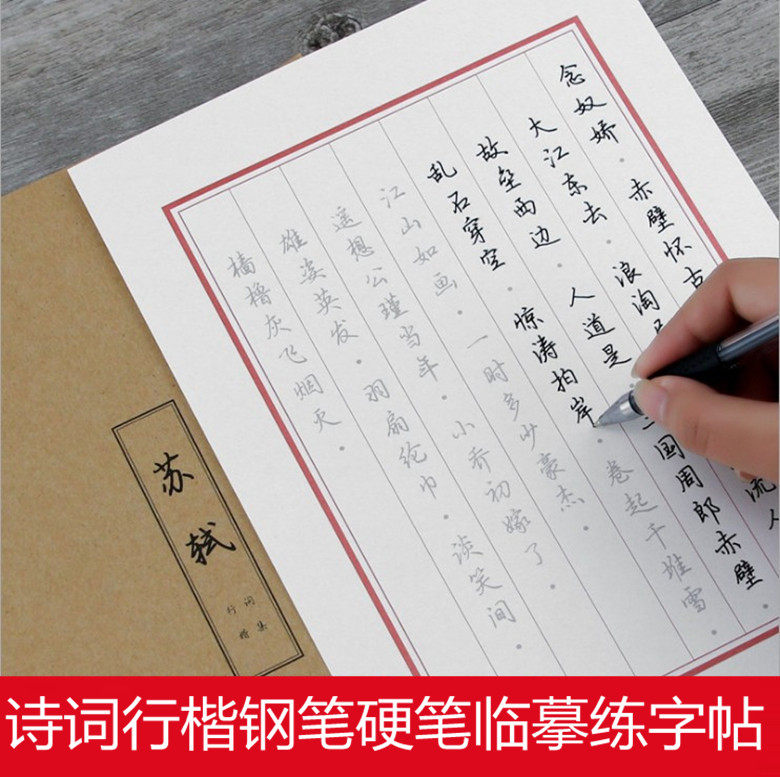 念奴娇·赤壁怀古
大江东去·浪淘 流人
故垒西边·人道是 国周郎赤壁·
乱石穿空·惊涛拍岸·卷起千堆雪·
江山如画·一时多少豪杰·
遥想公瑾当年·小乔初嫁了·
雄姿英发·羽扇纶巾·谈笑间·
樯橹灰飞烟灭·
苏轼
词集
行楷
诗词行楷钢笔硬笔临摹练字帖